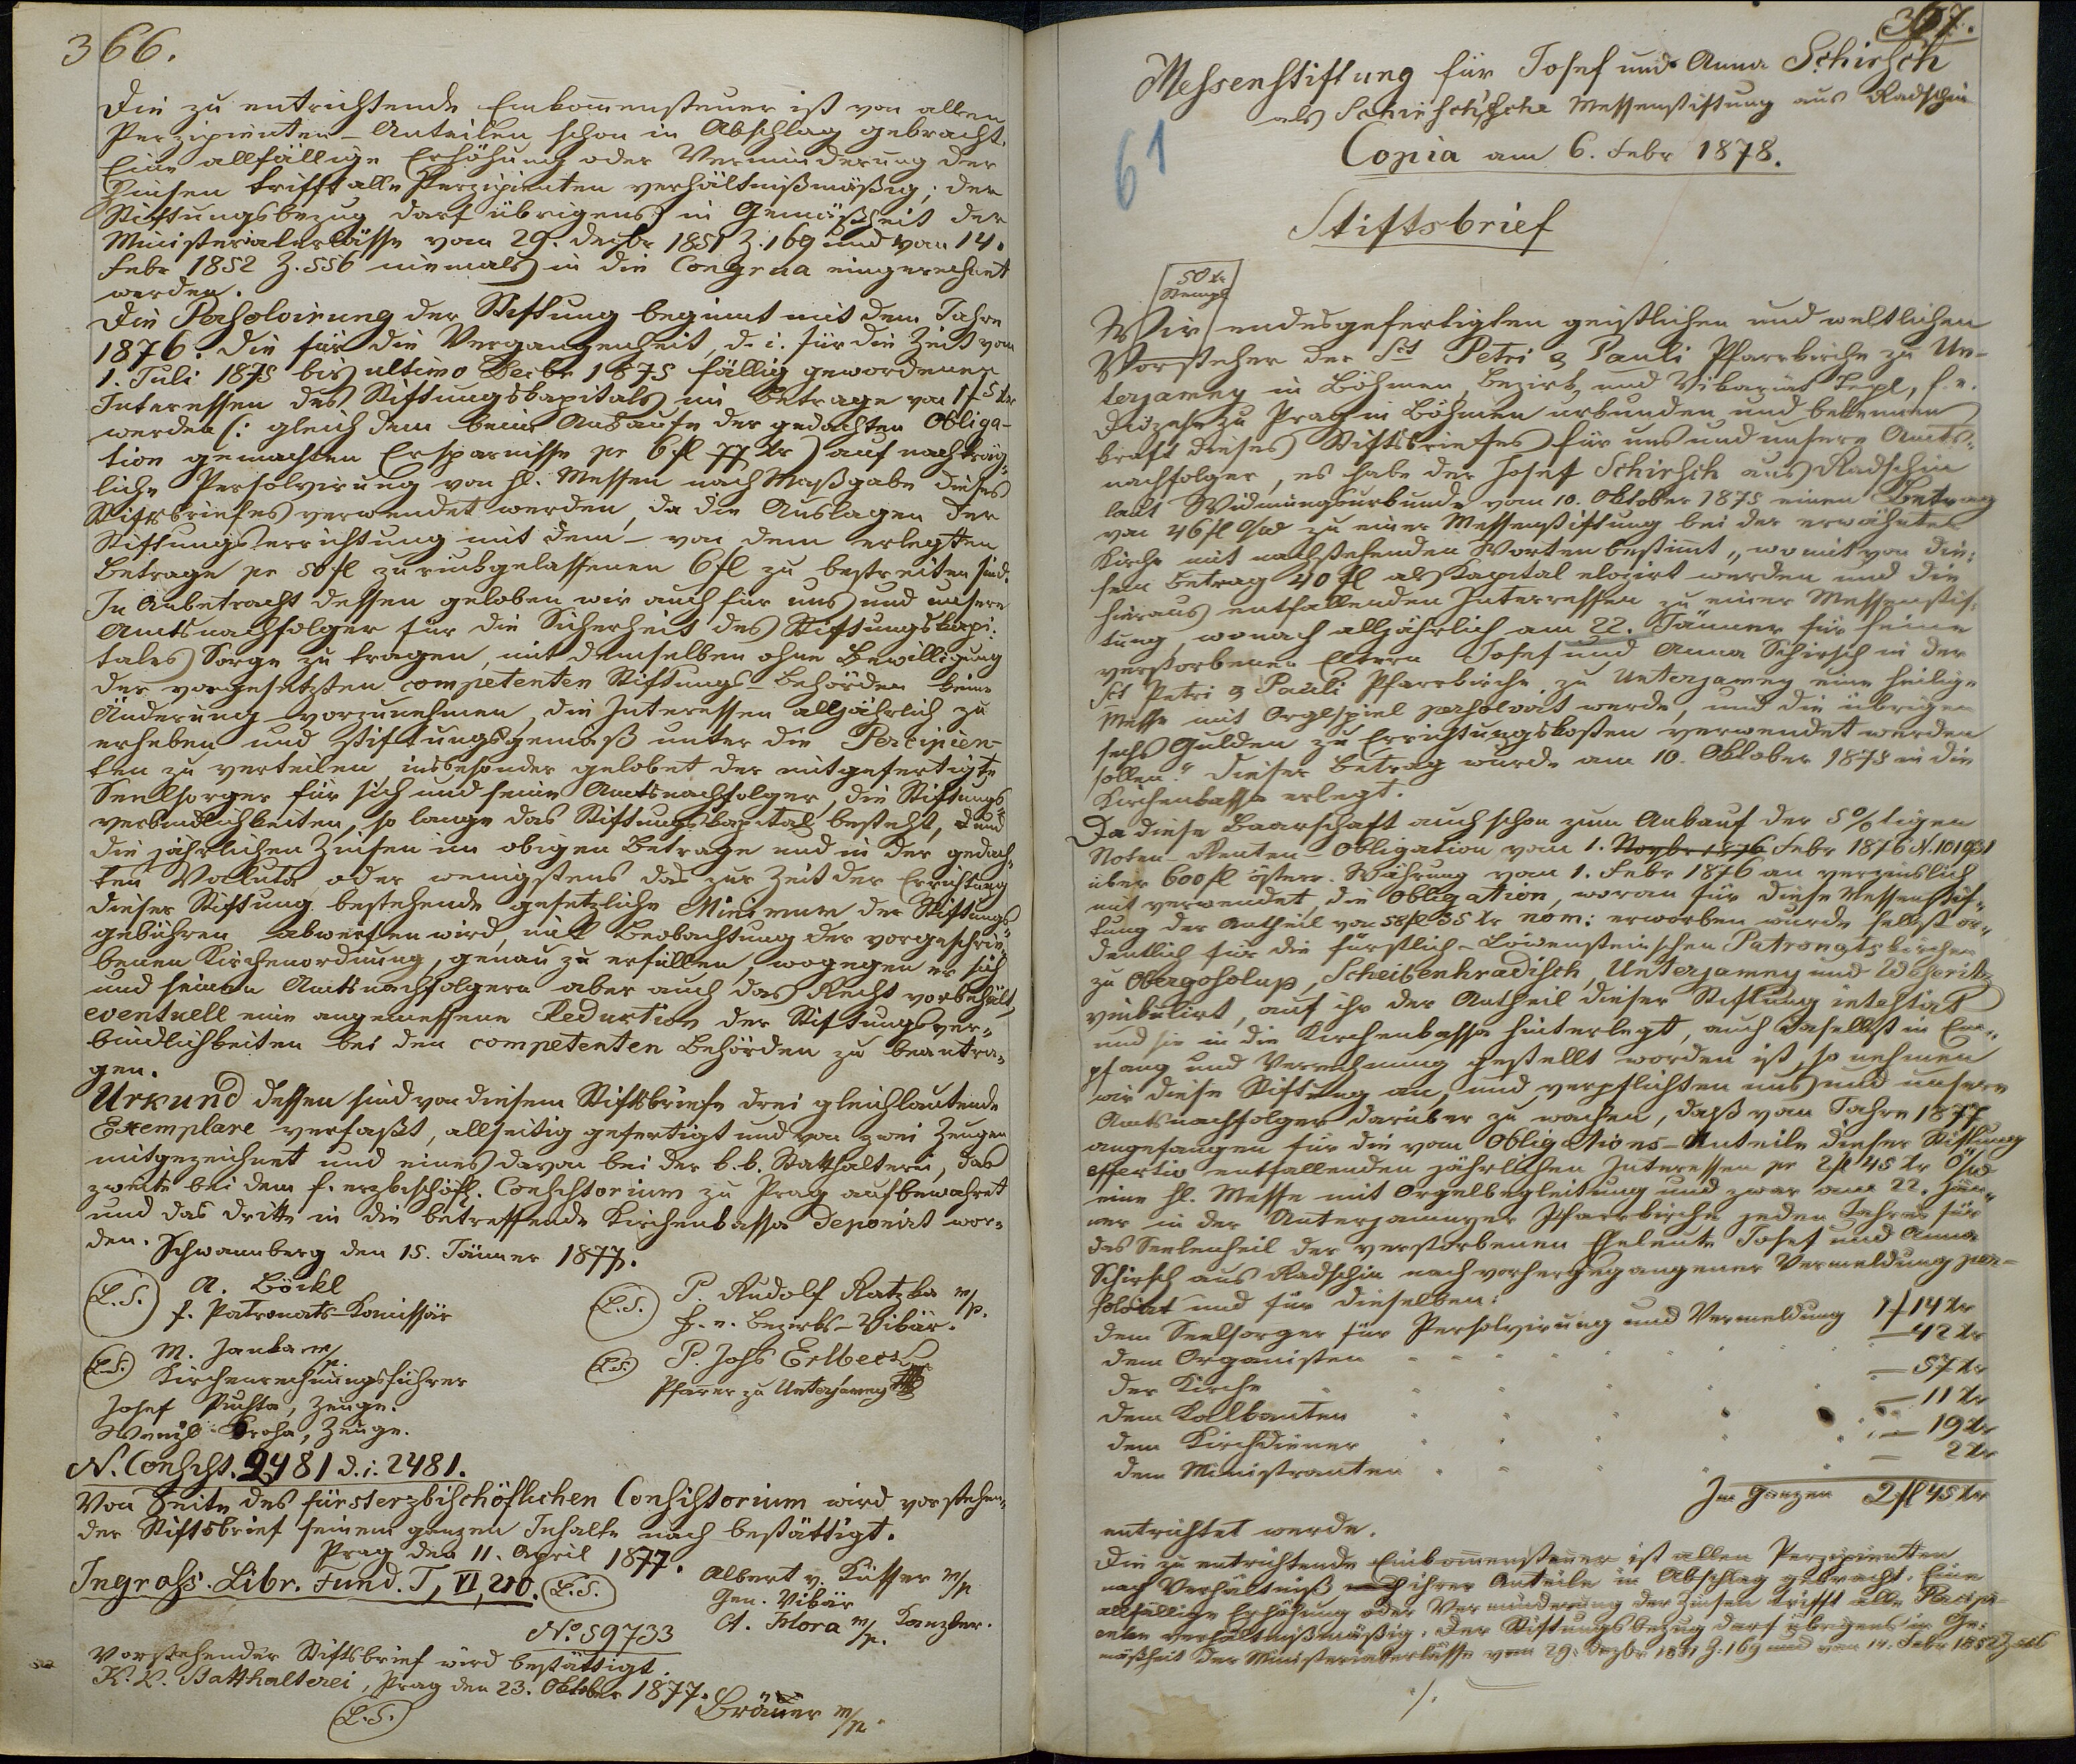 366.
Die zu entrichtende Einkommensteuer ist von allen
Perzipienten-Anteilen schon in Abschlag gebracht.
Eine allfällige Erhöhung oder Verminderung der
Zinsen trifft alle Perzipienten verhältnißmäßig; der
Stiftungsbezug darf übrigens in Gemäßheit der
Ministerialerlässe vom 29. Dezbr 1851 Z. 169 und vom 14.
Febr 1852 Z. 556 niemals in die Congrua eingerechnet
werden.
Die Persolvirung der Stiftung beginnt mit dem Jahre
1876. Die für die Vergangenheit, d. i. für die Zeit vom
1. Juli 1875 bis ultimo Decbr 1875 fällig gewordenen
Interessen des Stiftungskapitals im Betrage von 1 f 5 xr
werden (: gleich dem beim Ankaufe der gedachten Obliga-
tion gemachten Ersparnisse pr 6 fl 77 xr) auf nachträg-
liche Persolvirung von hl. Messen nach Maßgabe dieses
Stiftsbriefes verwendet werden, da die Auslagen der
Stiftungserrichtung mit dem – von dem erlegten
Betrage pr 50 fl zurückgelassenen 6 fl zu bestreiten sind.
In Anbetracht dessen geloben wir auch für uns und unsere
Amtsnachfolger für die Sicherheit des Stiftungskapi-
tales Sorge zu tragen, mit demselben ohne Bewilligung
der vorgesetzten competenten Stiftungs-Behörden keine
Änderung vorzunehmen, die Interessen alljährlich zu
erheben und stiftungsgemäß unter die Percipien-
ten zu verteilen, insbesonder gelobet der mitgefertigte
Seelsorger für sich und seine Amtsnachfolger, die Stiftungs-
verbindlichkeiten, so lange das Stiftungskapital besteht, und
die jährlichen Zinsen im obigen Betrage und in der gedach-
ten Valuta oder wenigstens das zur Zeit der Errichtung
dieser Stiftung bestehende gesetzliche Minimum der Stiftungs-
gebühren abwerfen wird, mit Beobachtung der vorgeschrie-
benen Kirchenordnung, genau zu erfüllen, wogegen er sich
und seinen Amtsnachfolgern aber auch das Recht vorbehält,
eventuell eine angemessene Reduktion der Stiftungsver-
bindlichkeiten bei den competenten Behörden zu beantra-
gen.
Urkund dessen sind von diesem Stiftsbriefe drei gleichlautende
Exemplare verfaßt, allseitig gefertigt und von zwei Zeugen
mitgezeichnet und eines davon bei der k. k. Statthalterei, das
zweite bei dem f. erzbischöfl. Consistorium zu Prag aufbewahrt
und das dritte in die betreffende Kirchenkassa deponirt wor-
den. Schwannberg den 15. Jänner 1877.
(L. S.) A. Böckl
f. Patronats-Komissär
(L. S.) P. Rudolf Ratzka m/p.
f. e. Bezirks-Vikär.
(L. S.) M. Janka m/p.
Kirchenrechnungsführer
(L. S.) P. Johs Erlbeck
Pfarrer zu Unterjamny
Josef Puchta, Zeuge.
Wenzl Proha, Zeuge.
N. Consist. 2481 d. i. 2481.
Von Seite des fürsterzbischöflichen Consistorium wird vorstehen-
der Stiftsbrief seinem ganzen Inhalte nach bestättigt.
Prag den 11. April 1877.
Ingross. Libr. Fund. T, VI, 210. (L. S.)
Albert v. Küffer m/p
Gen. Vikär
A. Flora m/p. Kanzler.
No. 59733
Vorstehender Stiftsbrief wird bestättigt.
K. K. Statthalterei, Prag den 23. Oktober 1877.
(L. S.) Bräuer m/p.
367.
Messenstiftung für Josef und Anna Schirsch
als Schirsch'sche Messenstiftung aus Radschin
61
Copia am 6. Febr 1878.
Stiftsbrief
50 xr
Stempl
Wir endesgefertigten geistlichen und weltlichen
Vorsteher der Sct Petri & Pauli Pfarrkirche zu Un-
terjamny in Böhmen, Bezirk und Vikariat Tepl, f. e.
Diözese zu Prag in Böhmen urkunden und bekennen
kraft dieses Stiftsbriefes für uns und unsere Amts-
nachfolger, es habe der Josef Schirsch aus Radschin
laut Widmungsurkunde vom 10. Oktober 1875 einen Betrag
von 46 fl ö/W zu einer Messenstiftung bei der erwähnten
Kirche mit nachstehenden Worten bestimt „womit von die-
sem Betrag 40 fl als Kapital elozirt werden und die
hieraus entfallenden Interressen zu einer Messenstif-
tung, wonach alljährlich am 22. Jänner für seine
verstorbenen Eltern Josef und Anna Schirsch in der
Sct Petri & Pauli Pfarrkirche zu Unterjamny eine heilige
Messe mit Orglspiel persolvirt werde, und die übrigen
sechs Gulden zu Errichtungskosten verwendet werden
sollen." Dieser Betrag wurde am 10. Oktober 1875 in die
Kirchenkassa erlegt.
Da diese Baarschaft auch schon zum Ankauf der 5%tigen
Noten-Renten-Obligation vom 1. Novbr 1876 Febr 1876 N. 101931
über 600 fl österr. Währung vom 1. Febr 1876 an verzinslich
mit verwendet, die Obligation, woran für diese Messenstif-
tung der Antheil von 58 fl 35 xr nom: erworben wurde selbst or-
dentlich für die fürstlich-Löwensteinschen Patronatskirchen
zu Obergosolup, Scheibenhradisch, Unterjamny und Weseritz
vinkulirt, auf ihr der Antheil dieser Stiftung intestirt
und sie in die Kirchenkassa hinterlegt, auch daselbst in Em-
pfang und Verrechnung gestellt worden ist, so nehmen
wir diese Stiftung an, und verpflichten uns und unsere
Amtsnachfolger darüber zu wachen, daß vom Jahre 1877
angefangen für die vom Obligations-Anteile dieser Stiftung
effectiv entfallenden jährlichen Interessen pr 2 fl 45 xr ö/W
eine hl. Messe mit Orgelbegleitung und zwar am 22. Jän-
ner in der Unterjamnyer Pfarrkirche jeden Jahres für
das Seelenheil der verstorbenen Eheleute Josef und Anna
Schirsch aus Radschin nach vorhergegangener Vermeldung per-
solvirt und für dieselben:
dem Seelsorger für Persolvirung und Vermeldung 1 f 14 xr
dem Organisten — 42 xr
der Kirche — 57 xr
dem Kalkanten — 11 xr
dem Kirchdiener — 19 xr
dem Ministranten — 2 xr
Im Ganzen 2 fl 45 xr
entrichtet werde.
Die zu entrichtende Einkommensteuer ist allen Perzipienten
nach Verhältniß ihrer Anteile in Abschlag gebracht. Eine
allfällige Erhöhung oder Verminderung der Zinsen trifft alle Percipi-
enten verhältnißmäßig. Der Stiftungsbezug darf übrigens in Ge-
mäßheit der Ministerialerlässe vom 29. Dezbr 1851 Z. 169 und vom 14. Febr 1852 Z 556
./.